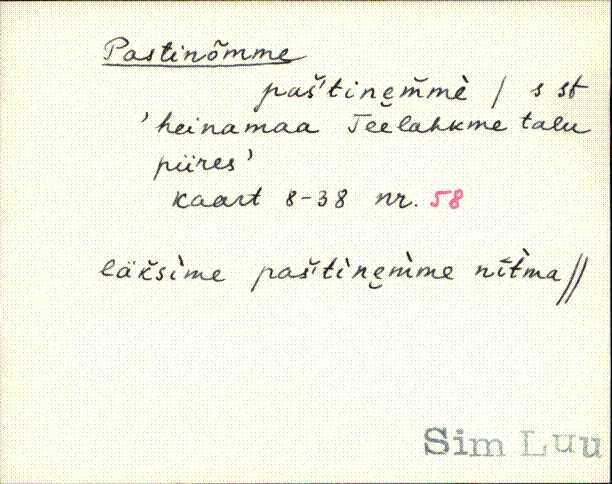 Pastinõmme
paš'tinem̆mè / s st
'heinamaa Teelahkme talu
piires'
kaart 8-38 nr. 58
läk̆sìme paš'tìnem̀me nīt̀ma //
Sim Luu